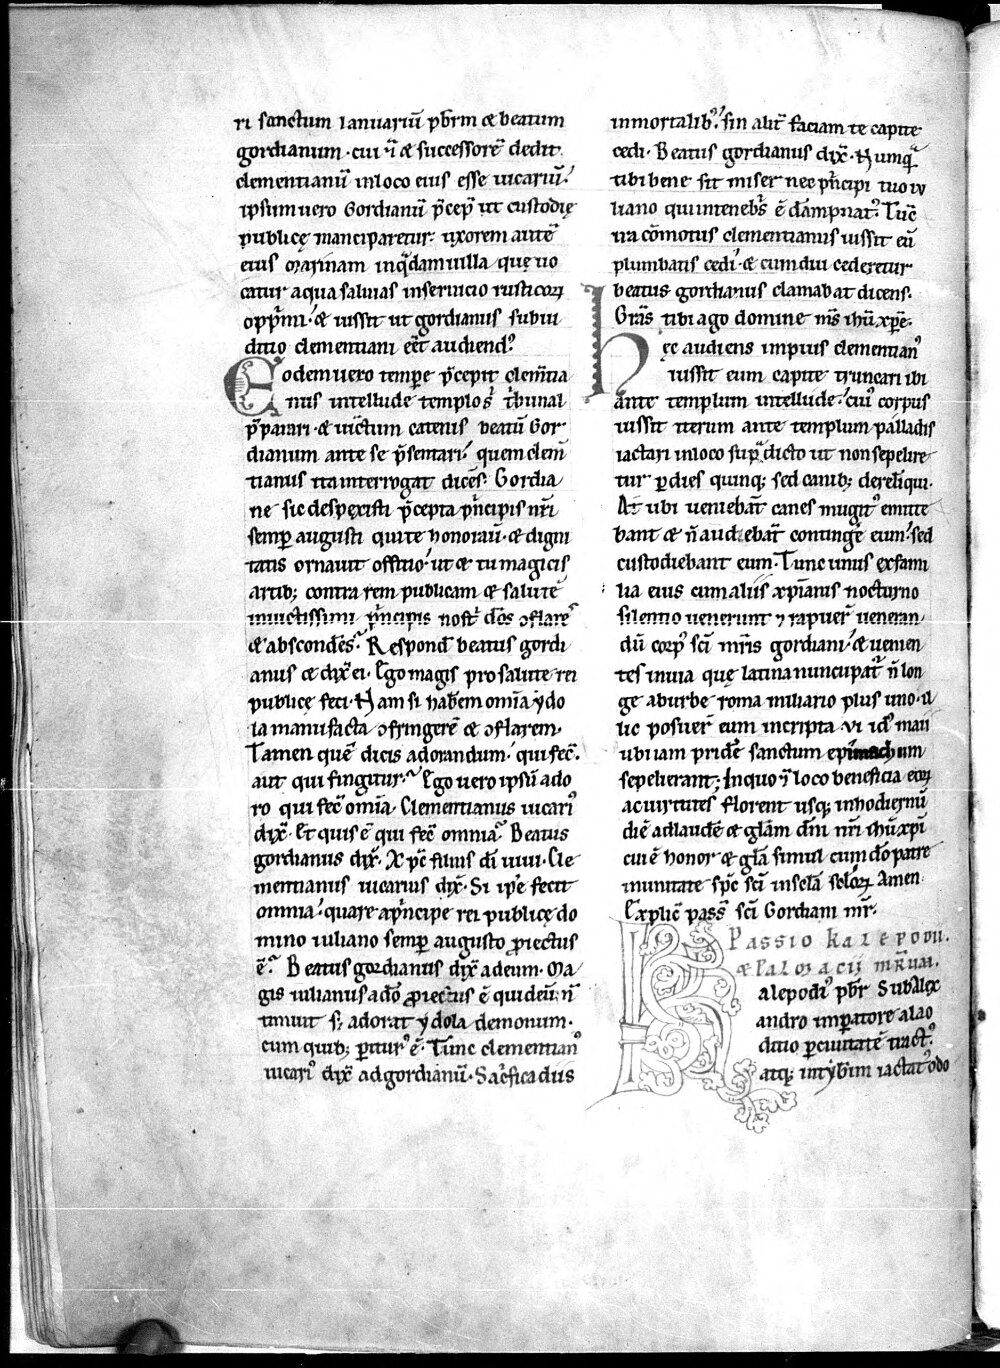 ri sanctum ianuariũ p̃brm & beatum
gordianum · cui ĩ & successorẽ dedit
clementianũ inloco eius esse uicariũ ·
ipsum uero Gordianũ p̃cep̃ ut custodię
publicę manciparetur · uxorem autẽ
eius marinam in q̃dam uilla quę uo
catur aqua saluias inseruicio rusticoꝝ
opp̃mi · & iussit ut gordianus subiu
ditio clementiani eẽt audiendꝰ
Eodem uero tempẽ p̃cepit clem̃tia
nus intellude templo tͥbunal
p̃parari · & uĩctum catenis beatũ Gor
dianum ante se p̃sentari · quem clem̃
tianus ita interrogat dicẽs · Gordia
ne sic despexisti p̃cepta p̃ncipis nr̃i
semp̃ augusti qui te honorauĩ · & digni
tatis ornauit offitio · ut & tu magicis
artibꝫ contra rem publicam & salutẽ
inuictissimi p̃ncipis nost̃ d̃os ɔflarẽ
& absconderes̃ · Respond̃ beatus gordi
anus & dix̃ ei · Ego magis pro salute rei
publicę feci · Nam si hab̃em om̃ia ydo
la manufacta ɔfringerẽ & ɔflarem ·
Tamen quẽ dicis adorandum · qui fec̃ ·
aut qui fingitur · Ego uero ipsũ ado
ro qui fec̃ om̃ia · Clementianus uicariꝰ
dix̃ · Et quis ẽ qui fec̃ omnia · Beatus
gordianus dix̃ · Xp̃c filius dĩ uiui · Cle
mentianus uicarius dix̃ · Si ip̃e fecit
omnia · quare a p̃ncipe rei publicę do
mino iuliano semp̃ augusto ꝓiectus
ẽ · Beatus gordianus dix̃ adeum · Ma
gis iulianus a d̃o ꝓiectus ẽ qui deũ ñ
timuit sꝫ adorat ydola demonum ·
cum quibꝫ p̃iturꝰ ẽ · Tunc clementianꝰ
uicariꝰ dix̃ ad gordianũ · Sac̃fica diis
inmortalibꝰ · sin alit̃ faciam te capite
cedi · Beatus gordianus dix̃ · Numq̃
tibi bene sit miser nec p̃ncipi tuo iu
liano qui intenebr̃s ẽ dãmpnatꝰ · Tũc
ira cõmotus clementianus iussit eũ
plumbatis cedi · & cum diu cederetur
beatus gordianus clamabat dicens ·
Grãs tibi ago domine m̃s ihũ xp̃e ·
Hęc audiens impius clementianꝰ
iussit eum capite truncari ibi
ante templum intellude · cuiꝰ corpus
iussit iterum ante templum palladis
iactari inloco sup̃dicto ut non sepelire
tur p̃ dies quinqꝫ sed canibꝫ derelĩqui ·
At ubi uenieban̄t canes mugitꝰ emitte
bant & ñ audebãt contingẽ eum · sed
custodiebant eum · Tunc unus ex fami
lia eius cum aliis xp̃ianis nocturno
silentio uenerunt ⁊ rapuer̃ ueneran
dũ corpꝰ sc̃i mr̃is gordiani · & uenien
tes in uia quę latina nuncupat̃ ñ lon
ge ab urbe roma miliario plus uno · il
lic posuer̃ eum in cripta · vi id̃ maii
ubi iam pridẽ sanctum epimachum
sepelierant ; In quo ĩ loco beneficia eoꝝ
ac uirtutes florent usqꝫ in hodiernũ
diẽ ad laudẽ & glãm dñi nr̃i ihũ xp̃i
cui ẽ honor & glã simul cum d̃o patre
in unitate sp̃c sc̃i in sc̃lã sc̃loꝝ Amen
Explic̃ pass̃ sc̃i Gordiani mr̃ ·
Passio kalepodii ·
& Palmacii mr̃ũ ·
Kalepodiꝰ p̃br Sub Alex
andro imp̃atore a lao
ditio p̃ ciuitatẽ tractꝰ
atqꝫ in tybĩm iactatꝰ · do